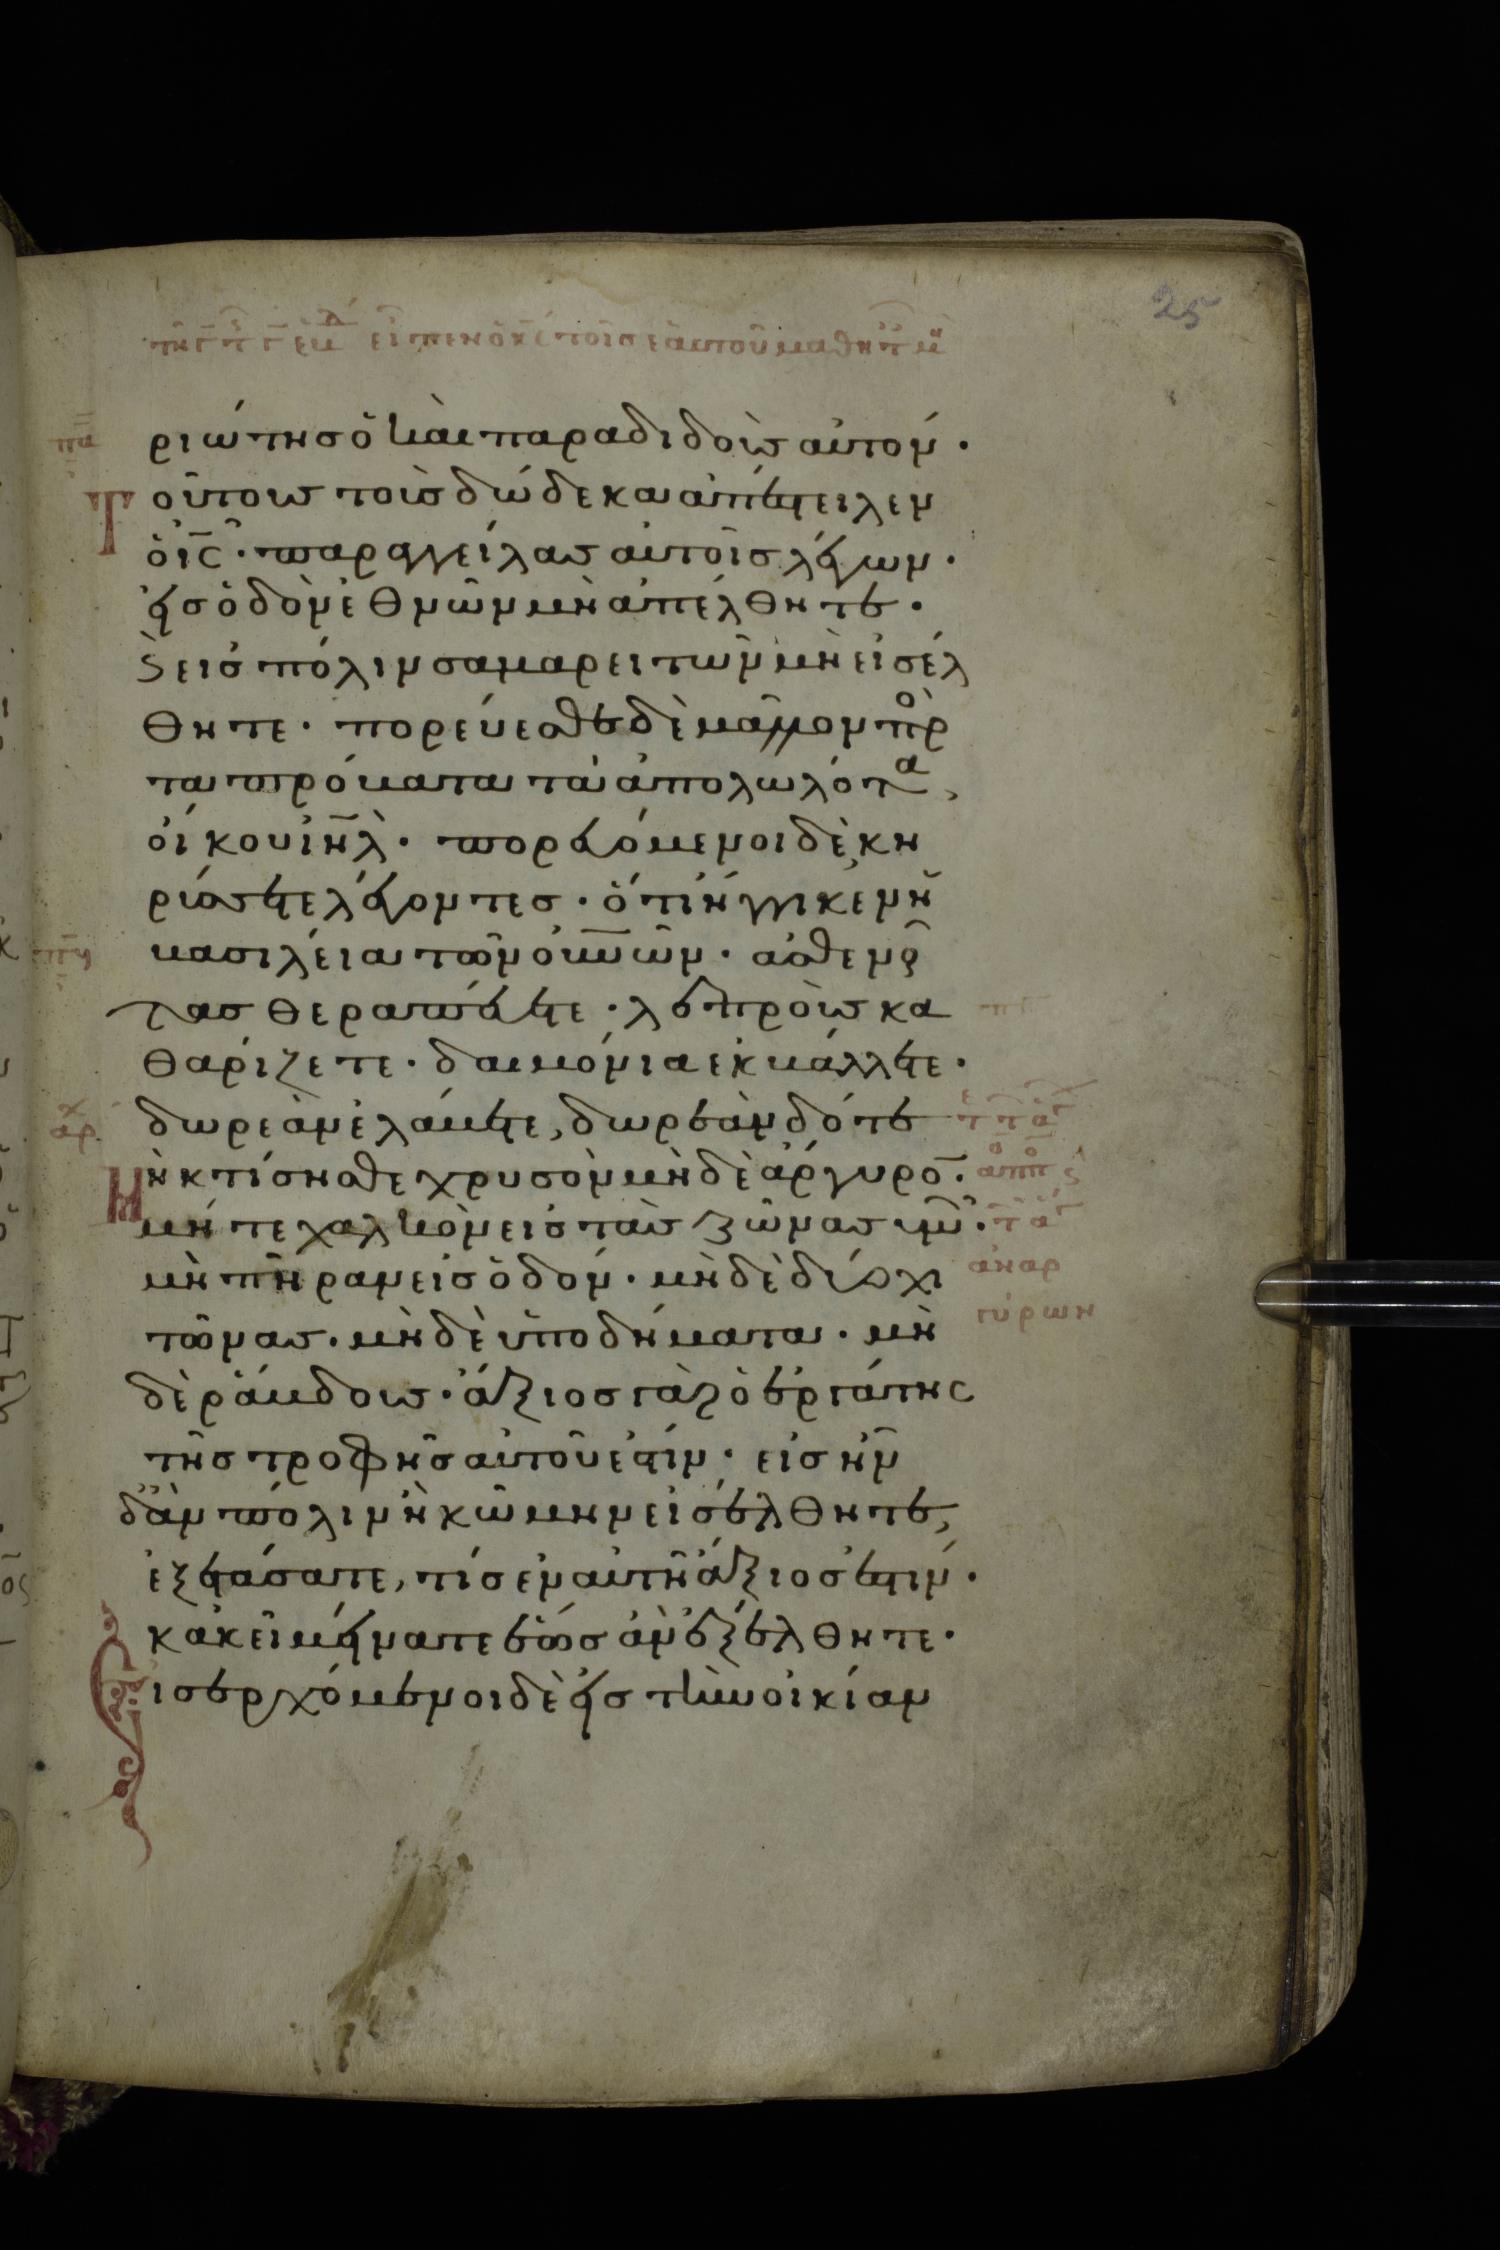 25
εἶπεν ὁ κ̅ς̅ τοῖς ἑαυτοῦ μαθητ
ριώτης ὁ καὶ παραδιδοὺς αὐτόν ·
Τούτους τοὺς δώδεκα ἀπέστειλεν
ὁ ι̅ς̅ · παραγγείλας αὐτοῖς λέγων ·
εἰς ὁδὸν ἐθνῶν μὴ ἀπέλθητε ·
ϗ εἰς πόλιν σαμαρειτῶν μὴ εἰσέλ
θητε · πορεύεσθε δὲ μᾶλλον πρ
τὰ πρόβατα τὰ ἀπολωλότα,
οἴκου ι̅η̅λ̅ · πορευόμενοι δὲ κη
ρύσσετε λέγοντες · ὅτι ἤγγικεν ἡ
βασιλεία τῶν ο̅υ̅ν̅ῶν · ἀσθενοῦ
τας θεραπεύετε · λεπροὺς κα
θαρίζετε · δαιμόνια ἐκβάλλετε ·
δωρεὰν ἐλάβετε, δωρεὰν δότε
Μὴ κτίσησθε χρυσὸν μὴ δὲ ἄργυρο̅ ·
μήτε χαλκὸν εἰς τὰς ζώνας ὑμῶ ·
μὴ πήραν εἰς ὁδόν · μὴ δὲ δύο χι
τῶνας · μὴ δὲ ὑποδήματα · μὴ
δὲ ῥάβδους · ἄξιος γὰρ ὁ ἐργάτης
τῆς τροφῆς αὐτοῦ ἐστίν · εἰς ἣν
δ' ἂν πόλιν ἢ κώμην εἰσέλθητε,
ἐξετάσατε, τίς ἐν αὐτῇ ἄξιος ἐστιν ·
κἀκεῖ μείνατε ἕως ἂν ἐξέλθητε ·
Εἰσερχόμενοι δὲ εἰς τὴν οἰκίαν
ἀναρ
γύρων